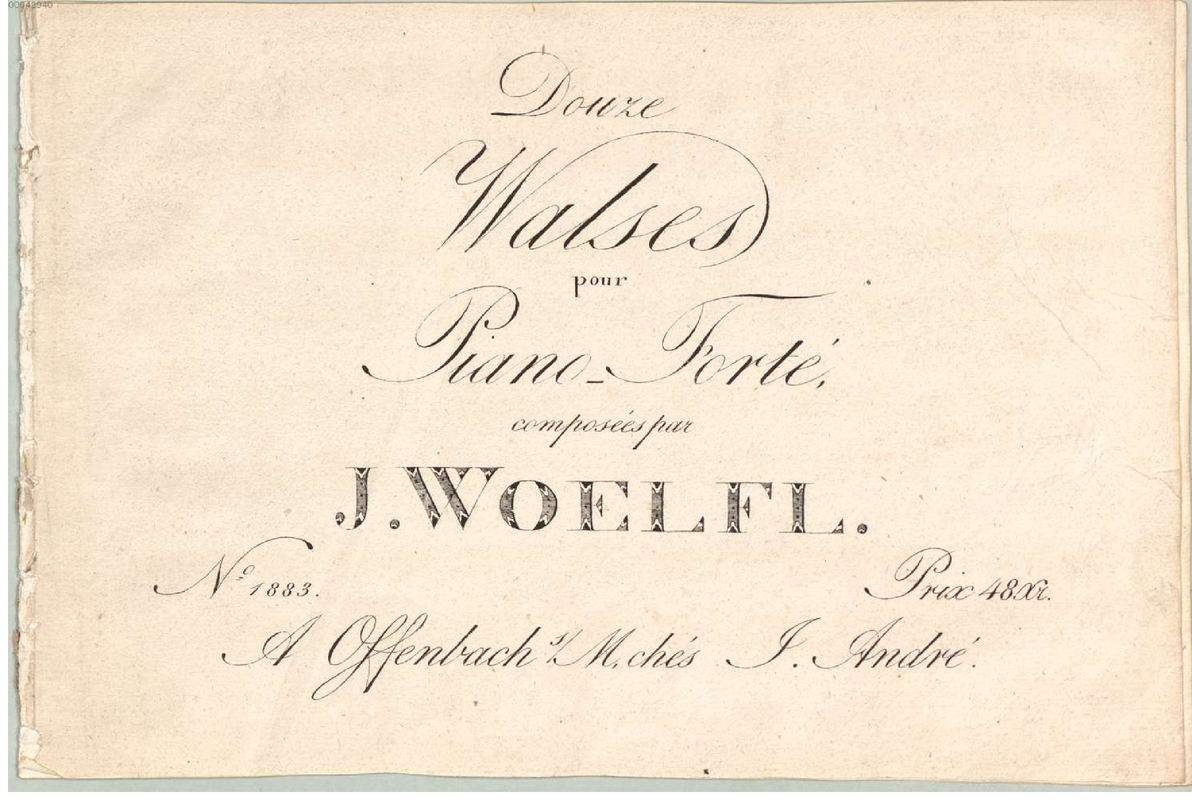 00042940
Douze
Walses
pour
Piano-Forté,
composéés par
J. WOELFL.
Nº 1883. Prix 48 Xr.
A Offenbach s/M, chés J. André.